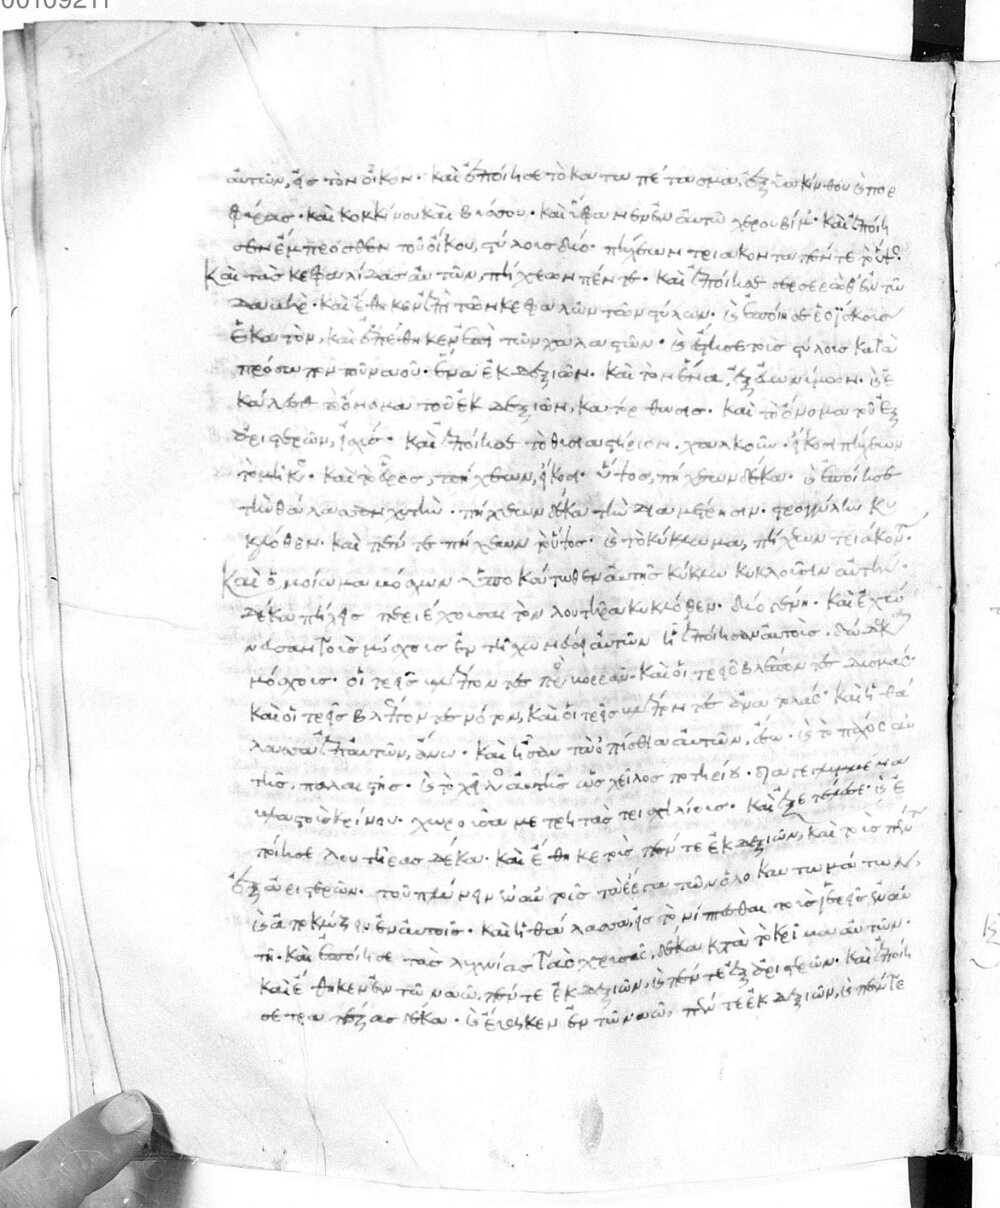 00109211
αὐτῶν, εἰς τὸν οἶκον. καὶ ἐποίησε τὸ καταπέτασμα, ἐξ ὑακίνθου καὶ πορ
φύρας. καὶ κοκκίνου καὶ βύσσου. καὶ ὕφανεν ἐν αὐτῷ χερουβίμ. καὶ ἐποίη
σεν ἔμπροσθεν τοῦ οἴκου, στύλους δύο. πήχεων τριακονταπέντε τὸ ὕψος.
Καὶ τὰς κεφαλίδας αὐτῶν, πήχεων πέντε. καὶ ἐποίησε σερσερὼθ ἐν τῷ
δαβὴρ. καὶ ἔθηκεν ἐπὶ τῶν κεφαλῶν τῶν στύλων. καὶ ἐποίησε ῥοΐσκους
ἑκατὸν, καὶ ἐπέθηκεν ἐπὶ τῶν χαλαστῶν. καὶ ἔστησε τοὺς στύλους κατὰ
πρόσωπον τοῦ ναοῦ. ἕνα ἐκ δεξιῶν. καὶ τὸν ἕνα, ἐξ εὐωνύμων. καὶ ἐ
κάλεσε τὸ ὄνομα τοῦ ἐκ δεξιῶν, κατόρθωσις. καὶ τὸ ὄνομα τοῦ ἐξ
ἀριστερῶν, ἰσχύς. καὶ ἐποίησε τὸ θυσιαστήριον χαλκοῦν. εἴκοσι πήχεων
τὸ μῆκος. καὶ τὸ εὖρος, πήχεων εἴκοσι. ὕψος, πήχεων δέκα. καὶ ἐποίησε
τὴν θάλασσαν χυτὴν. πήχεων δέκα τὴν διαμέτρησιν. στρογγύλην κυ
κλόθεν. καὶ πέντε πήχεων τὸ ὕψος. καὶ τὸ κύκλωμα, πήχεων τριάκοντα.
Καὶ ὁμοίωμα μόσχων ὑποκάτωθεν αὐτῆς κύκλῳ κυκλοῦσιν αὐτήν.
δέκα πήχεις περιέχουσαι τὸν λουτῆρα κυκλόθεν. δύο γένη. καὶ ἐχώ
νευσαν τοὺς μόσχους ἐν τῇ χωνεύσει αὐτῶν ᾗ ἐποίησαν αὐτοὺς. δώδεκα
μόσχους. οἱ τρεῖς βλέποντες πρὸς βορρᾶν. καὶ οἱ τρεῖς βλέποντες δυσμὰς
καὶ οἱ τρεῖς βλέποντες νότον, καὶ οἱ τρεῖς βλέποντες ἀνατολάς. καὶ ἡ θά
λασσα ἐπ' αὐτῶν, ἄνω. καὶ ἦσαν τὰ ὀπίσθια αὐτῶν, ἔσω. καὶ τὸ πάχος αὐ
τῆς, παλαιστής. καὶ τὸ χεῖλος αὐτῆς ὡς χεῖλος ποτηρίου. διαγεγλυμμένα
βλαστοὺς κρίνου. χωροῦσα μετρητὰς τρισχιλίους. καὶ ἐξετέλεσε. καὶ ἐ
ποίησε λουτῆρας δέκα. καὶ ἔθηκε τοὺς πέντε ἐκ δεξιῶν, καὶ τοὺς πέντε
ἐξ ἀριστερῶν. τοῦ πλύνειν ἐν αὐτοῖς τὰ ἔργα τῶν ὁλοκαυτωμάτων,
καὶ ἀποκλύζειν ἐν αὐτοῖς. καὶ ἡ θάλασσα, εἰς τὸ νίπτεσθαι τοὺς ἱερεῖς ἐν αὐ
τῇ. καὶ ἐποίησε τὰς λυχνίας τὰς χρυσᾶς, δέκα κατὰ τὸ κρίμα αὐτῶν.
καὶ ἔθηκεν ἐν τῷ ναῷ, πέντε ἐκ δεξιῶν, καὶ πέντε ἐξ ἀριστερῶν. καὶ ἐποίη
σε τραπέζας δέκα. καὶ ἔθηκεν ἐν τῷ ναῷ, πέντε ἐκ δεξιῶν, καὶ πέντε